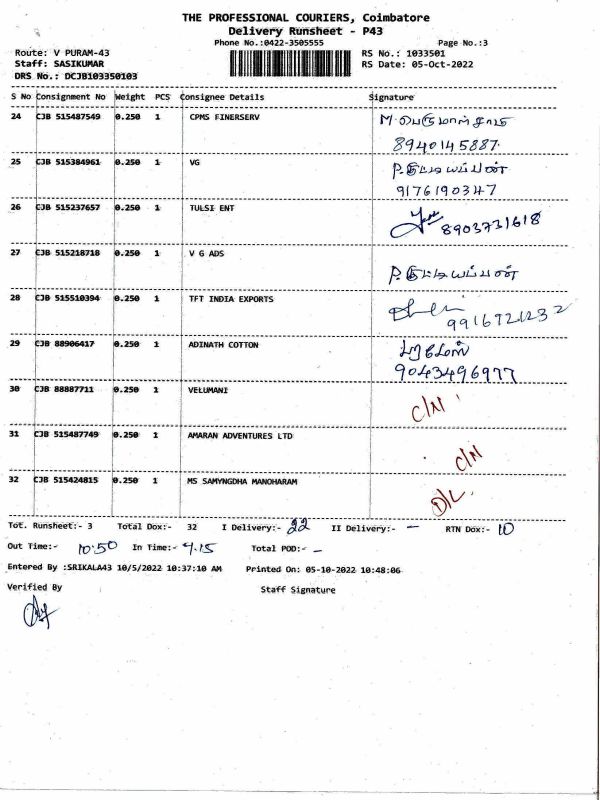 THE PROFESSIONAL COURIERS, Coimbatore
Delivery Runsheet - P43
Phone No.:0422-3505555 Page No.:3
Route: V PURAM-43 RS No.: 1033501
Staff: SASIKUMAR RS Date: 05-Oct-2022
DRS No.: DCJB103350103
S No Consignment No Weight PCS Consignee Details Signature
24 CJB 515487549 0.250 1 CPMS FINERSERV M. பெருமாள்சாமி
8940145887
25 CJB 515384961 0.250 1 VG P. குட்டியப்பன்
9176190347
26 CJB 515237657 0.250 1 TULSI ENT 8903731618
27 CJB 515218718 0.250 1 V G ADS P. குட்டியப்பன்
28 CJB 515510394 0.250 1 TFT INDIA EXPORTS
9916721232
29 CJB 88906417 0.250 1 ADINATH COTTON
9043496977
30 CJB 88887711 0.250 1 VELUMANI C/N
31 CJB 515487749 0.250 1 AMARAN ADVENTURES LTD C/N
32 CJB 515424815 0.250 1 MS SAMYNGDHA MANOHARAM D/L
Tot. Runsheet:- 3 Total Dox:- 32 I Delivery:- 22 II Delivery:- – RTN Dox:- 10
Out Time:- 10:50 In Time:- 4.15 Total POD:- –
Entered By :SRIKALA43 10/5/2022 10:37:10 AM Printed On: 05-10-2022 10:48:06
Verified By Staff Signature